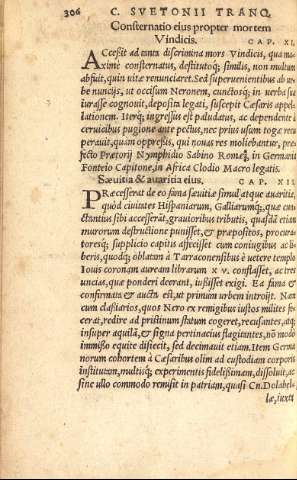 306 C. SVETONII TRANQ.
Consternatio eius propter mortem
Vindicis. CAP. XI.
ACceßit ad tanta discrimina mors Vindicis, qua ma
ximè consternatus, destitutoq; similis, non multum
abfuit, quin vitæ renunciaret. Sed superuenientibus ab ur
be nuncijs, ut occisum Neronem, cunctosq; in uerba sua
iurasse cognouit, deposita legati, suscepit Cæsaris appel-
lationem. Iterq; ingressus est paludatus, ac dependente à
ceruicibus pugione ante pectus, nec prius usum togæ recu
perauit, quàm oppreßi, qui nouas res moliebantur, præ-
fecto Prætorij Nymphidio Sabino Romæ, in Germania
Fonteio Capitone, in Africa Clodio Macro legatis.
Sæuitia & auaritia eius. CAP. XII.
PRæcesserat de eo fama sæuitiæ simul atque auaritiæ,
quòd ciuitates Hispaniarum, Galliarumq;, quæ cun
ctantius sibi accesserāt, grauioribus tributis, quasdā etiam
murorum destructione punisset, & præpositos, procura-
toresq; supplicio capitis affecisset cum coniugibus ac li-
beris, quodq; oblatam à Tarraconensibus è uetere templo
Iouis coronam auream librarum xv. conflasset, ac tres
uncias, quæ ponderi deerant, iußisset exigi. Ea fama &
confirmata & aucta est, ut primum urbem introijt. Nam
cum claßiarios, quos Nero ex remigibus iustos milites fe
cerat, redire ad pristinum statum cogeret, recusantes, atq;
insuper aquilā, & signa pertinacius flagitantes, nō modo
immißo equite disiecit, sed decimauit etiam. Item Germa
norum cohortem à Cæsaribus olim ad custodiam corporis
institutam, multisq; experimentis fidelißimam, dissoluit, ac
sine ullo commodo remisit in patriam, quasi Cn. Dolabel-
læ, iuxta